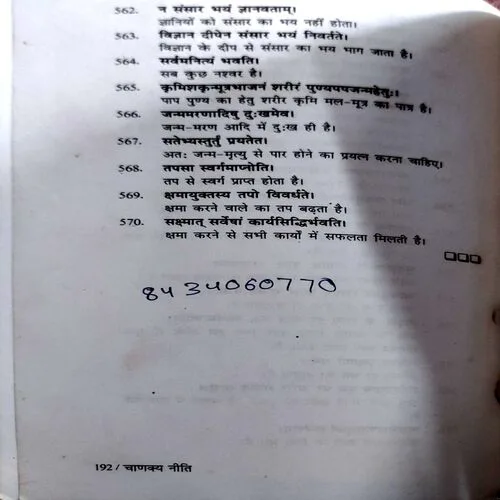 562. न संसार भयं ज्ञानवताम्।
ज्ञानियों को संसार का भय नहीं होता।
563. विज्ञान दीपेन संसार भयं निवर्तते।
विज्ञान के दीप से संसार का भय भाग जाता है।
564. सर्वमनित्यं भवति।
सब कुछ नश्वर है।
565. कृमिशकृन्मूत्रभाजनं शरीरं पुण्यपपजन्महेतुः।
पाप पुण्य का हेतु शरीर कृमि मल-मूत्र का पात्र है।
566. जन्ममरणादिषु दुःखमेव।
जन्म-मरण आदि में दुःख ही है।
567. सतेभ्यस्तुर्तुं प्रयतेत।
अतः जन्म-मृत्यु से पार होने का प्रयत्न करना चाहिए।
568. तपसा स्वर्गमाप्नोति।
तप से स्वर्ग प्राप्त होता है।
569. क्षमायुक्तस्य तपो विवर्धते।
क्षमा करने वाले का तप बढ़ता है।
570. सक्ष्मात् सर्वेषां कार्यसिद्धिर्भवति।
क्षमा करने से सभी कार्यों में सफलता मिलती है।
8434060770
192 / चाणक्य नीति